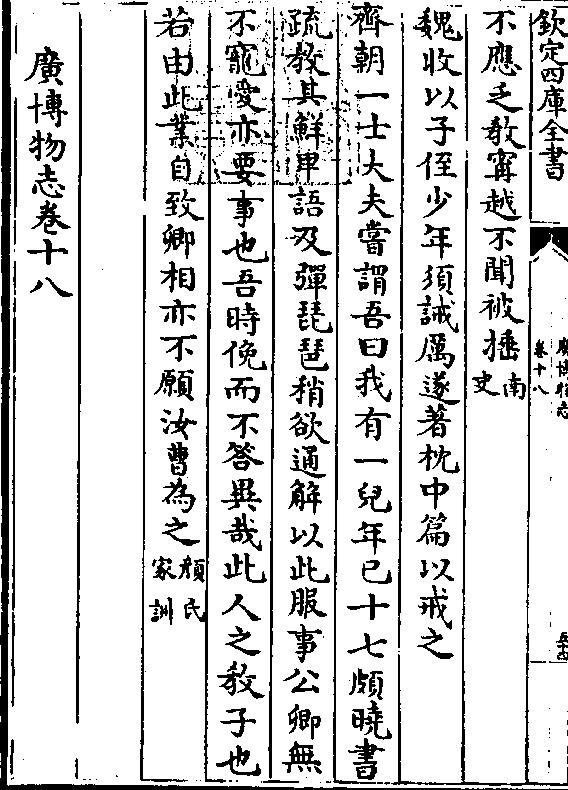 欽定四庫全書
廣博物志
卷十八
不應乏教甯越不聞被捶南史
魏收以子侄少年須誡厲遂著枕中篇以戒之
齊朝一士大夫嘗謂吾曰我有一兒年已十七頗曉書
疏教其鮮卑語及彈琵琶稍欲通解以此服事公卿無
不寵愛亦要事也吾時俛而不答異哉此人之教子也
若由此業自致卿相亦不願汝曹為之顔氏家訓
廣博物志卷十八